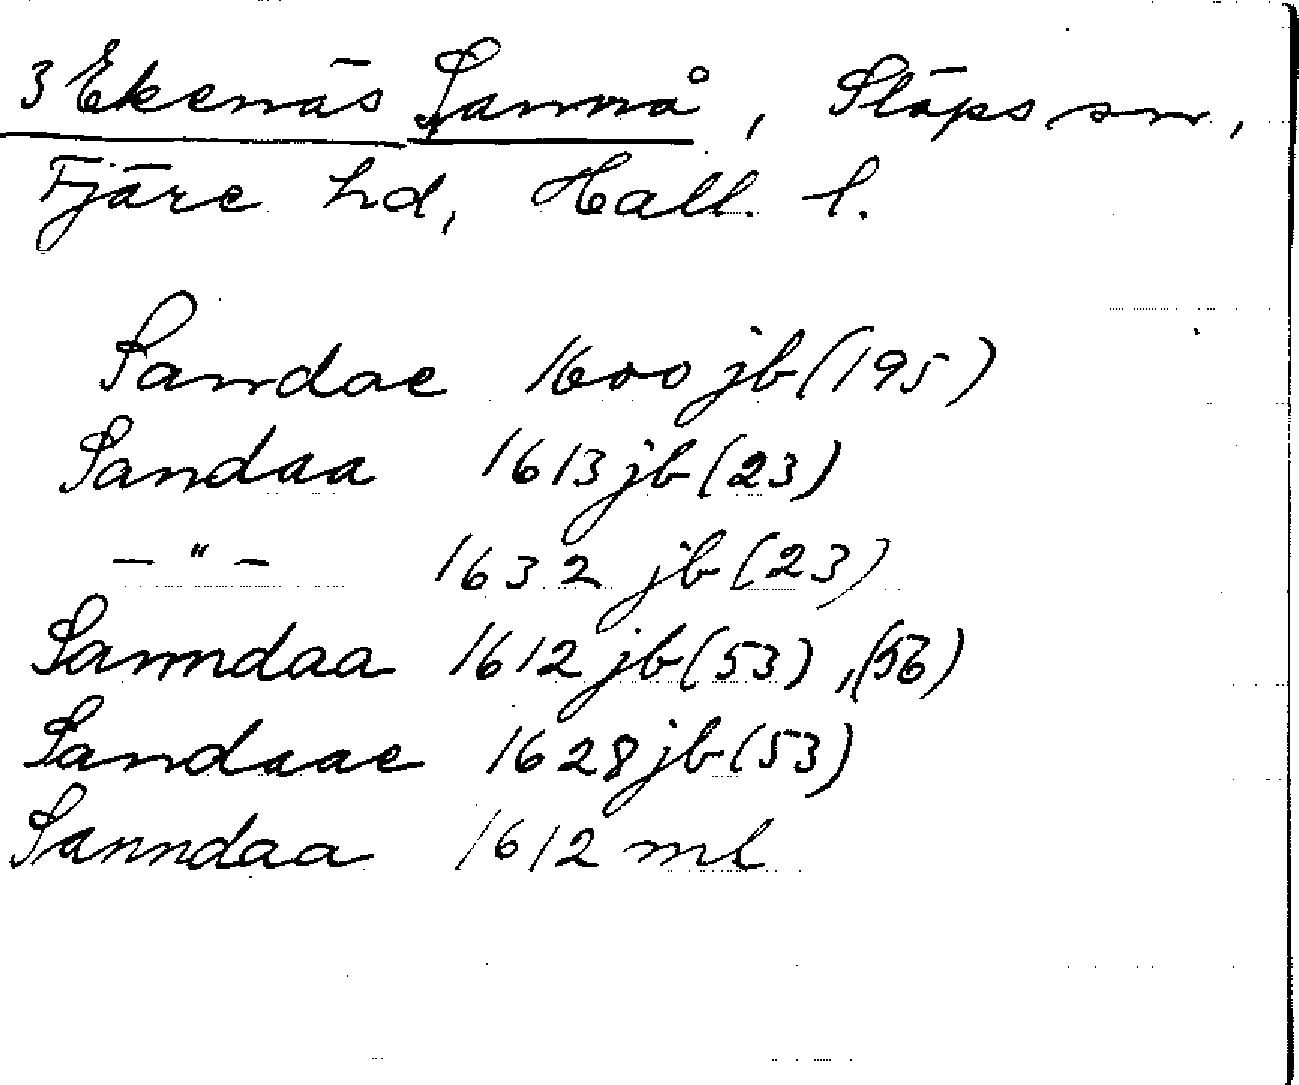 3 Ekenäs Sannå, Släps sn,
Fjäre hd, Hall. l.
Sandae 1600 jb (195)
Sandaa 1613 jb (23)
— " — 1632 jb (23)
Sanndaa 1612 jb (53), (56)
Sandaae 1628 jb (53)
Sanndaa 1612 ml